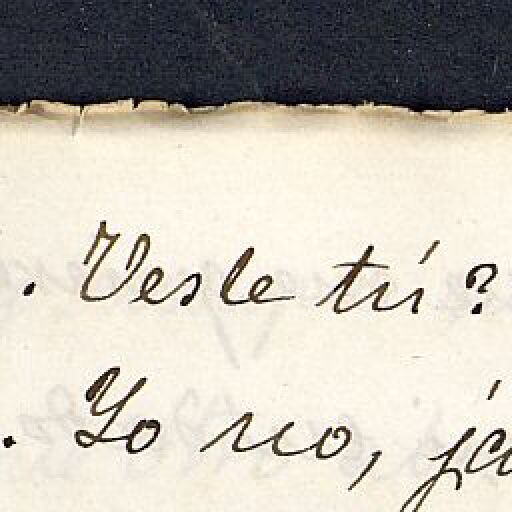 . Vesle tú?
. Yo no, já